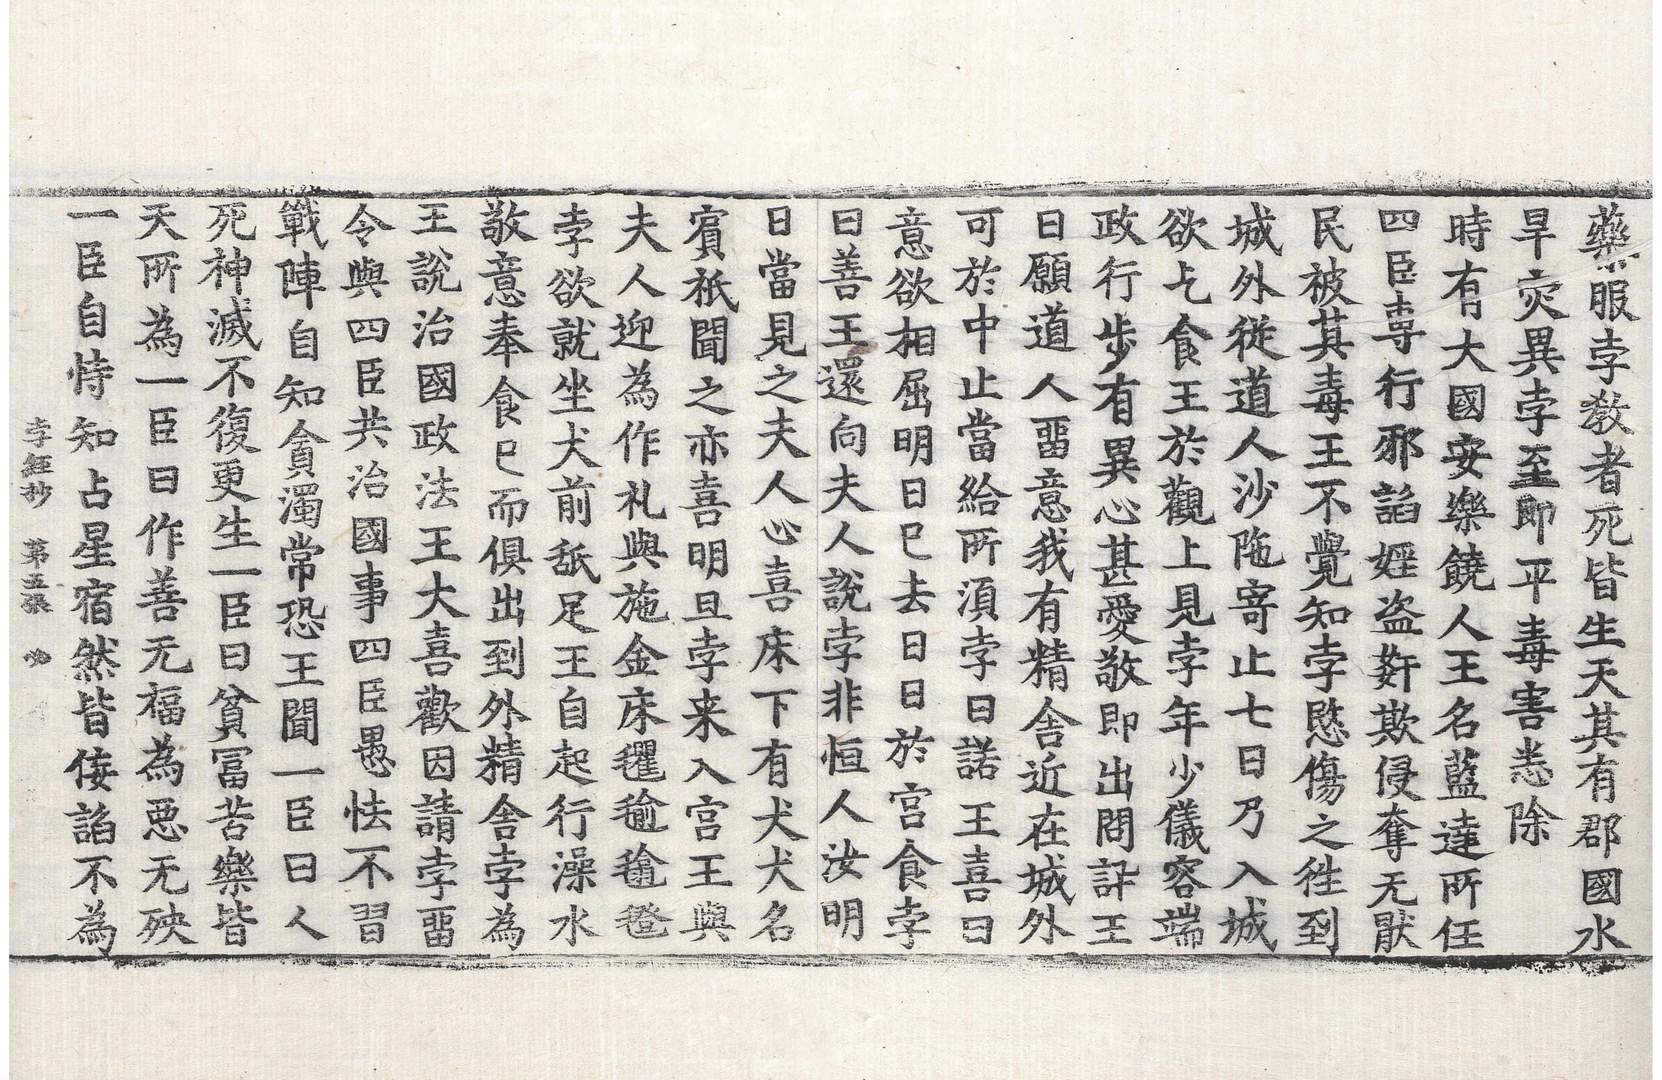 藥服孛教者死皆生天其有郡國水
旱灾異孛至即平毒害悉除
時有大國安樂饒人王名藍達所任
四臣専行邪諂婬盗姧欺侵奪无猒
民被其毒王不覺知孛愍傷之往到
城外従道人沙陁寄止七日乃入城
欲乞食王於觀上見孛年少儀容端
政行步有異心甚愛敬即出問訊王
曰願道人畱意我有精舍近在城外
可於中止當給所湏孛曰諾王喜曰
意欲相屈明日巳去日日於宮食孛
曰善王還向夫人說孛非恒人汝明
日當見之夫人心喜床下有犬犬名
賔祇聞之亦喜明旦孛来入宮王與
夫人迎為作礼與施金床氍毹毾㲪
孛欲就坐犬前舐足王自起行澡水
敬意奉食巳而俱出到外精舍孛為
王說治國政法王大喜歡因請孛畱
令與四臣共治國事四臣愚怯不習
戰陣自知貪濁常恐王聞一臣曰人
死神滅不復更生一臣曰貧冨苦樂皆
天所為一臣曰作善无福為惡无殃
一臣自恃知占星宿然皆倿諂不為
孛經抄 第五張